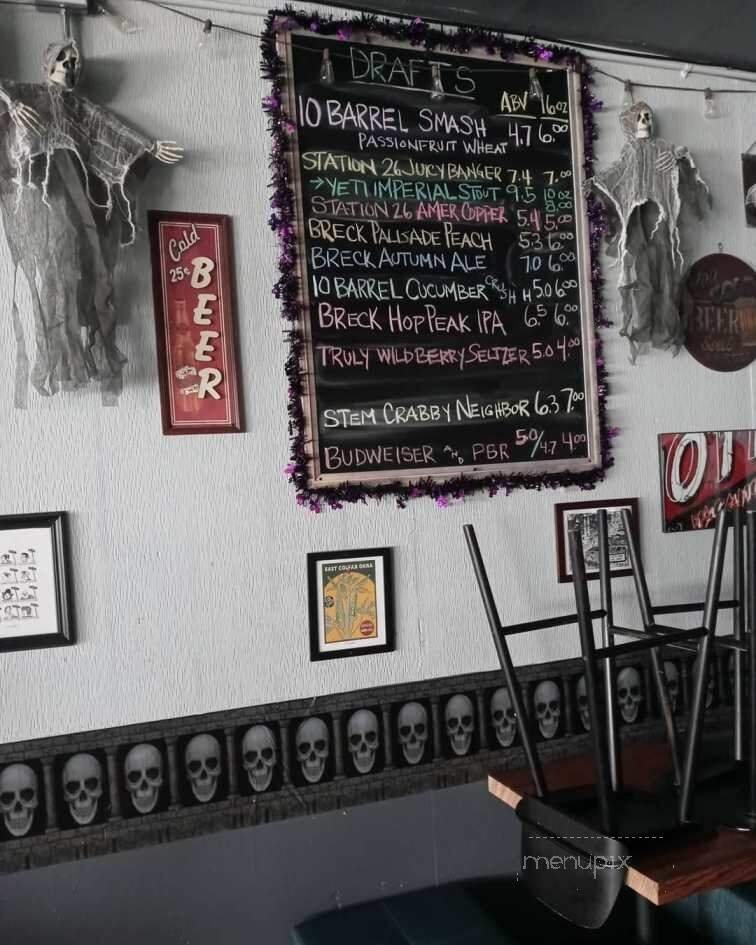 DRAFTS
ABV 16oz
10 BARREL SMASH 4.7 6.00
PASSIONFRUIT WHEAT
STATION 26 JUICY BANGER 7.4 7.00
→YETI IMPERIAL STOUT 9.5 10oz
STATION 26 AMER COPPER 5.4 5.00
BRECK PALISADE PEACH 5.3 6.00
BRECK AUTUMN ALE 7.0 6.00
10 BARREL CUCUMBER CRUSH 5.0 6.00
BRECK HOP PEAK IPA 6.5 6.00
TRULY WILDBERRY SELTZER 5.0 4.00
STEM CRABBY NEIGHBOR 6.3 7.00
BUDWEISER AND PBR 5.0/4.7 4.00
Cold
25¢
BEER
BEER
EAST COLFAX
menupix